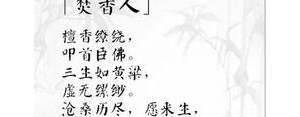 「焚香人」
檀香缭绕，
叩首臣佛。
三生如黄粱，
虚无缥缈。
沧桑历尽，愿来生，